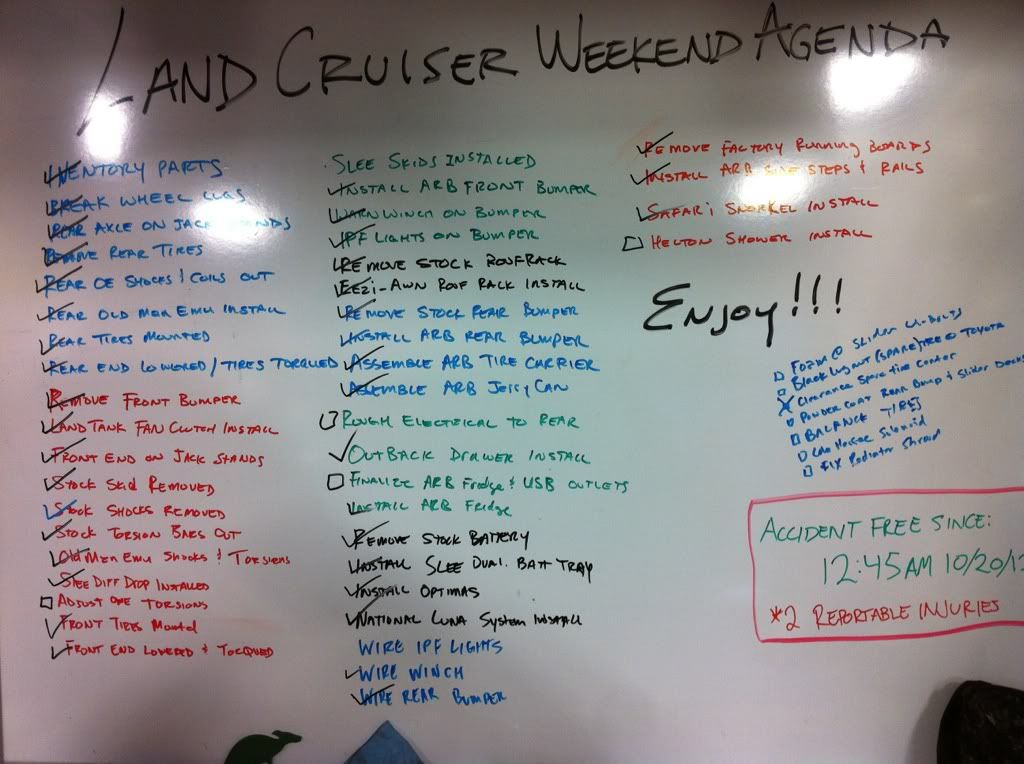 LAND CRUISER WEEKEND AGENDA
INVENTORY PARTS
BREAK WHEEL LUGS
REAR AXLE ON JACK STANDS
REMOVE REAR TIRES
REAR OE SHOCKS & COILS OUT
REAR OLD MAN EMU INSTALL
REAR TIRES MOUNTED
REAR END LOWERED / TIRES TORQUED
REMOVE FRONT BUMPER
LANDTANK FAN CLUTCH INSTALL
FRONT END ON JACK STANDS
STOCK SKID REMOVED
STOCK SHOCKS REMOVED
STOCK TORSION BARS OUT
OLD MAN EMU SHOCKS & TORSIONS
SLEE DIFF DROP INSTALLED
ADJUST OME TORSIONS
FRONT TIRES MOUNTED
FRONT END LOWERED & TORQUED
SLEE SKIDS INSTALLED
INSTALL ARB FRONT BUMPER
WARN WINCH ON BUMPER
IPF LIGHTS ON BUMPER
REMOVE STOCK ROOF RACK
EEZI-AWN ROOF RACK INSTALL
REMOVE STOCK REAR BUMPER
INSTALL ARB REAR BUMPER
ASSEMBLE ARB TIRE CARRIER
ASSEMBLE ARB JERRY CAN
ROUGH ELECTRICAL TO REAR
OUTBACK DRAWER INSTALL
FINALIZE ARB FRIDGE & USB OUTLETS
INSTALL ARB FRIDGE
REMOVE STOCK BATTERY
INSTALL SLEE DUAL BATT TRAY
INSTALL OPTIMAS
NATIONAL LUNA SYSTEM INSTALL
WIRE IPF LIGHTS
WIRE WINCH
WIRE REAR BUMPER
REMOVE FACTORY RUNNING BOARDS
INSTALL ARB SIDE STEPS & RAILS
SAFARI SNORKEL INSTALL
HELTON SHOWER INSTALL
ENJOY!!!
FOAM @ SLIDER U-BOLTS
Black Lugnut (SPARE) TIRE @ TOYOTA
Clearance Spare tire carrier
POWDER COAT Rear Bump & Slider
BALANCE TIRES
FIX Radiator Shroud
ACCIDENT FREE SINCE:
12:45 AM 10/20/1
*2 REPORTABLE INJURIES